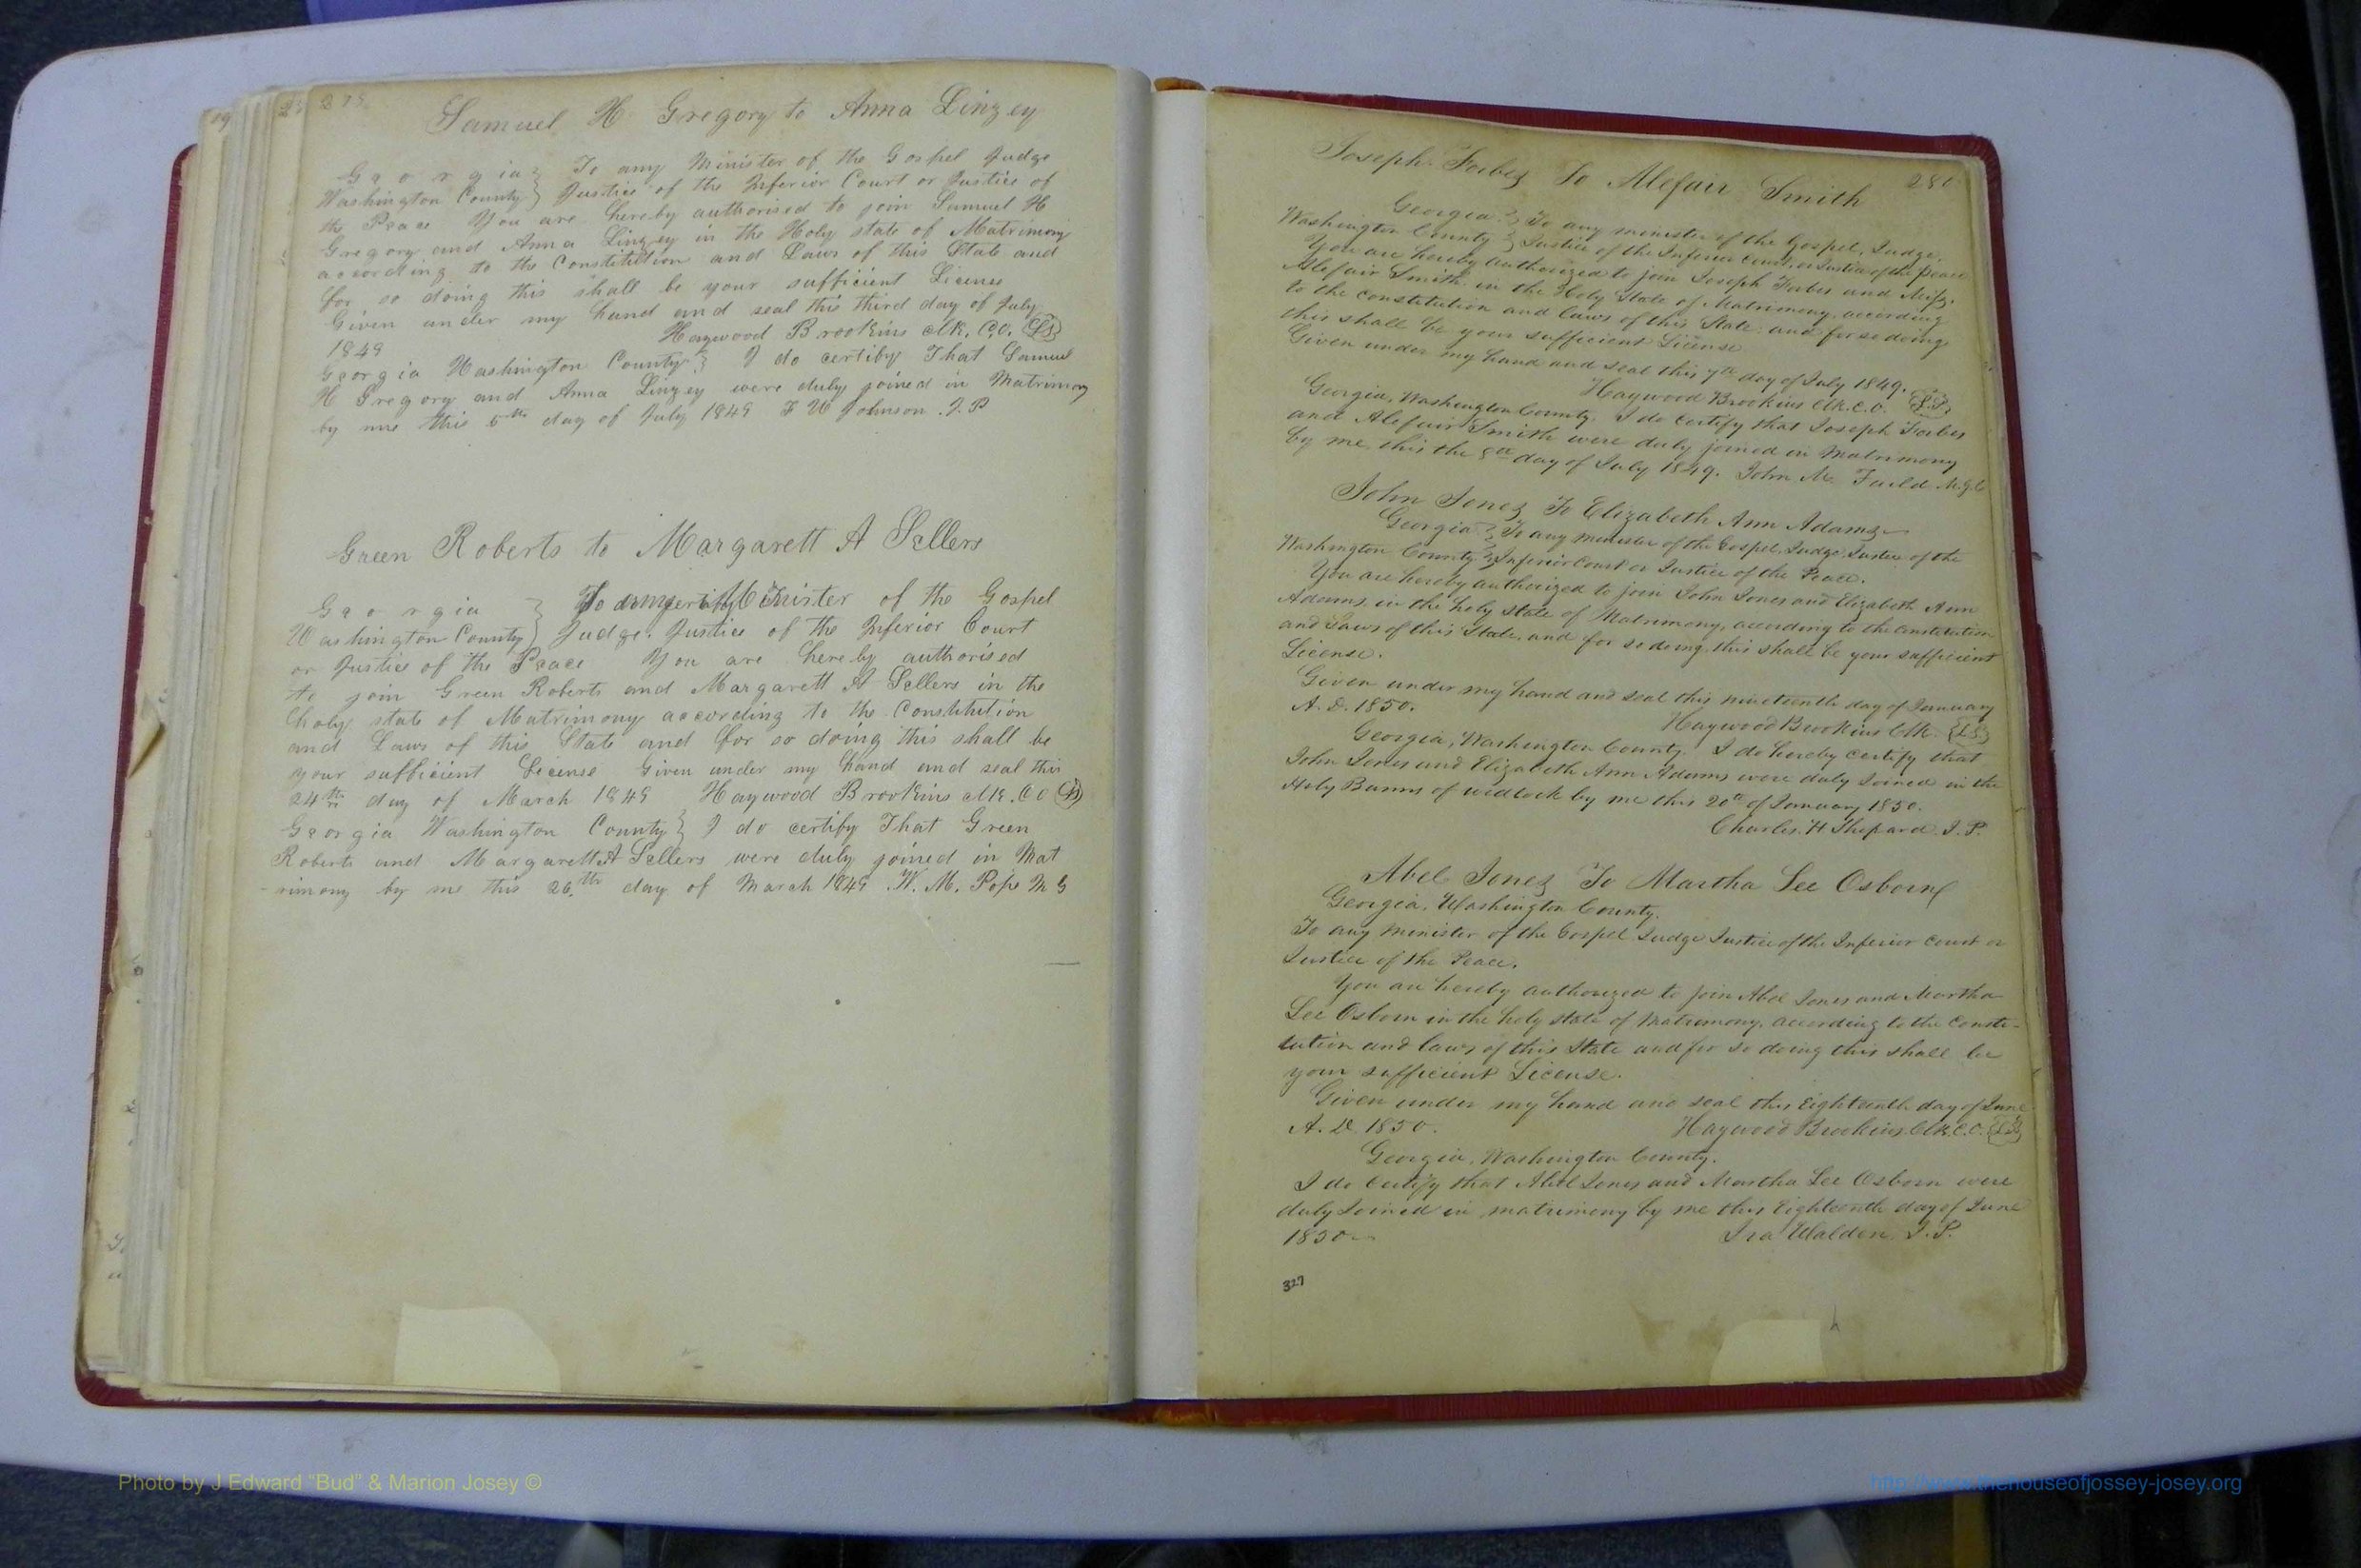 279
Samuel H Gregory to Anna Linzey
Georgia } To any Minister of the Gospel Judge
Washington County } Justice of the Inferior Court or Justice of
the Peace You are hereby authorised to join Samuel H
Gregory and Anna Linzey in the Holy state of Matrimony
according to the Constitution and Laws of this State and
for so doing this shall be your sufficient License
Given under my hand and seal this third day of July
1849 Haywood Brookins clk. C.O. (LS)
Georgia Washington County } I do certify That Samuel
H Gregory and Anna Linzey were duly joined in Matrimony
by me this 5th day of July 1849 F W Johnson J.P
Green Roberts to Margarett A Sellers
Georgia } To any Minister of the Gospel
Washington County } Judge. Justice of the Inferior Court
or Justice of the Peace You are hereby authorised
to join Green Roberts and Margarett A Sellers in the
holy state of Matrimony according to the Constitution
and Laws of this State and for so doing this shall be
your sufficient License Given under my hand and seal this
24th day of March 1849 Haywood Brookins clk. CO
Georgia Washington County } I do certify That Green
Roberts and Margarett A Sellers were duly joined in Mat
-rimony by me this 26th day of March 1849 W. M. Pope M G
280
Joseph Forbes To Alefair Smith
Georgia } To any minister of the Gospel, Judge,
Washington County } Justice of the Inferior Court, or Justice of the Peace
You are hereby authorized to join Joseph Forbes and Miss.
Alefair Smith in the Holy State of Matrimony, according
to the constitution and laws of this State: and for so doing
this shall be your sufficient License.
Given under my hand and seal this 7th day of July 1849.
Haywood Brookins Clk. C.O. {L.S}
Georgia, Washington County. I do certify that Joseph Forbes
and Alefair Smith were duly joined in Matrimony
by me, this the 8th day of July 1849. John M.
John Jones To Elizabeth Ann Adams
Georgia } To any minister of the Gospel, Judge, Justice of the
Washington County } Inferior Court or Justice of the Peace.
You are hereby authorized to join John Jones and Elizabeth Ann
Adams in the holy state of Matrimony, according to the Constitution
and Laws of this State, and for so doing this shall be your sufficient
License.
Given under my hand and seal this nineteenth day of January
A. D. 1850.
Haywood Brookins Clk. {L.S}
Georgia, Washington County. I do hereby certify that
John Jones and Elizabeth Ann Adams were duly Joined in the
Holy Banns of widlock by me this 20th of January 1850.
Charles. H Shepard. J. P.
Abel Jones To Martha Lee Osborn
Georgia, Washington County.
To any Minister of the Gospel Judge Justice of the Inferior Court or
Justice of the Peace.
You are hereby authorized to join Abel Jones and Martha
Lee Osborn in the holy state of Matrimony, according to the Consti-
tution and laws of this State and for so doing this shall be
your sufficient License.
Given under my hand and seal this Eighteenth day of June
A. D. 1850. Haywood Brookins Clk. C.O. {L.S}
Georgia, Washington County.
I do Certify that Abel Jones and Martha Lee Osborn were
duly Joined in matrimony by me this Eighteenth day of June
1850 Ira Walden. J. P.
327
Photo by J Edward "Bud" & Marion Josey ©
http://www.thehouseofjossey-josey.org